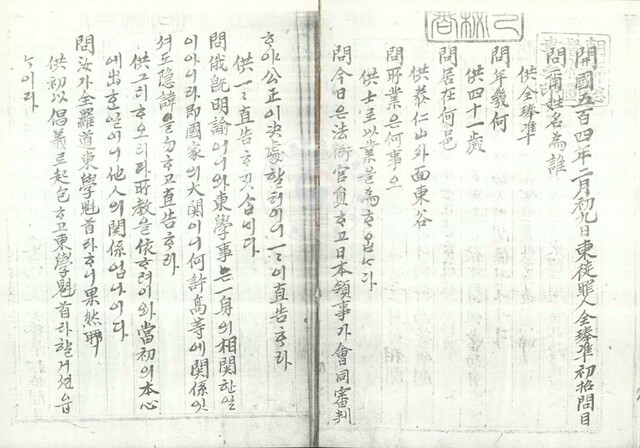 開國五百四年二月初九日東徒罪人全琫準初招問目
問爾姓名為誰
供全琫準
問年幾何
供四十一歲
問居在何邑
供泰仁山外面東谷
問所業是何事오
供士로以業을為ᄒᆞ옵ᄂᆡ다
問今日은法衙官員ᄒᆞ고日本領事가會同審判
ᄒᆞ야公正이決處ᄒᆞᆯ터이니一一이直告ᄒᆞ라
供一一直告ᄒᆞ깃ᄉᆞᆸᄂᆡ다
問俄旣明諭어니와東學事ᄂᆞᆫ一身의相關ᄒᆞᆫ일
이아니라即國家의大關이니何許高等에關係잇
셔도隱諱을勿ᄒᆞ고直告ᄒᆞ라
供그리ᄒᆞ오리다所教을依ᄒᆞ려이와當初의本心
에出ᄒᆞᆫ일이니他人의關係업나이다
問汝가全羅道東學魁首라ᄒᆞ니果然耶
供初以倡義로起包ᄒᆞ고東學魁首라ᄒᆞᆯ거션읍
ᄂᆞ이다